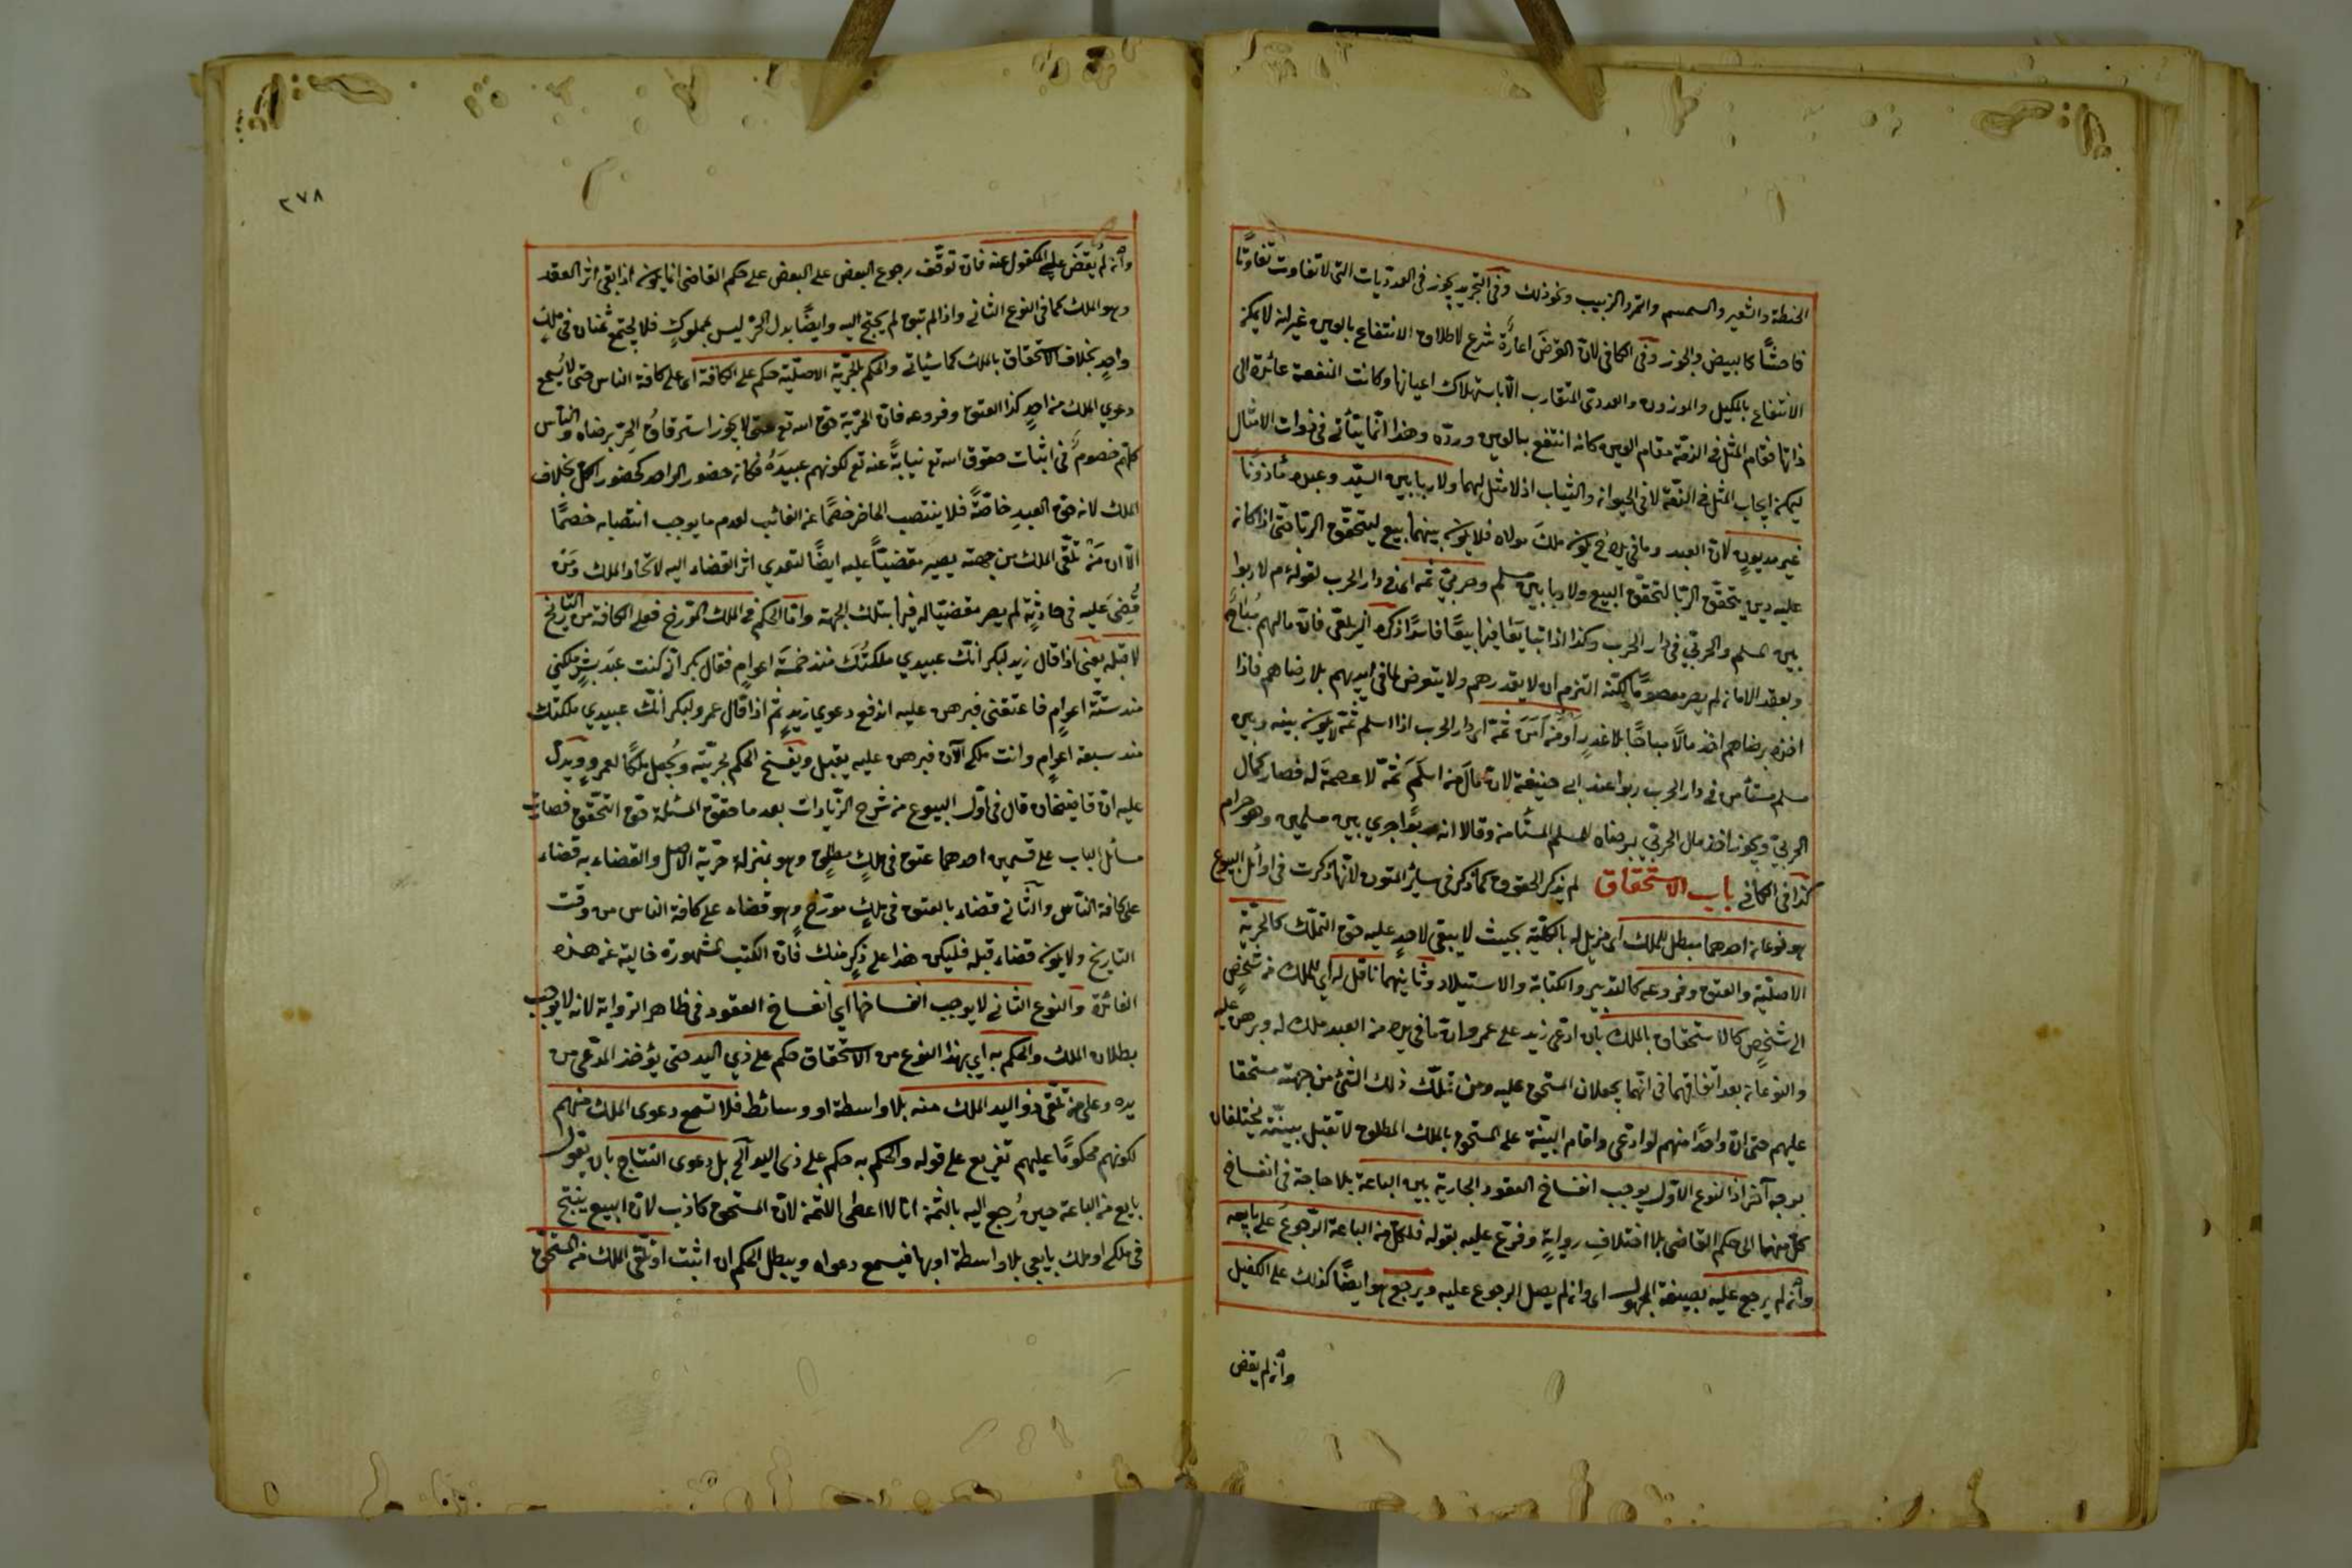 الحنطة والشعير والسمسم والتمر والزبيب ونحو ذلك وفى التجريد يجوز فى العدديات التى لا تتفاوت تفاوتًا
فاحشًا كالبيض والجوز وفى الكافى لان القرض اعارة شرع لاطلاق الانتفاع بالعين غير انه لا يمكن
الانتفاع بالمكيل والموزون والعددى المتقارب الا باستهلاك اعيانها وكانت المنفعة عائدة الى
ذاتها فقام المثل فى الذمة مقام العين كانه انتفع بالعين ورده وهذا انما يتأتى فى ذوات الامثال
ليمكن ايجاب المثل فى الذمة لا فى الحيوان والثياب اذ لا مثل لهما ولا ربا بين السيد وعبده مأذونًا
غير مديون لان العبد وما فى يده ح يكون ملك مولاه فلا يكون بينهما بيع ليتحقق الربا حتى اذا كان
عليه دين يتحقق الربا لتحقق البيع ولا ربا بين مسلم وحربى ثمه اى فى دار الحرب لقوله عم لا ربوا
بين المسلم والحربى فى دار الحرب وكذا اذا تبايعا فيها بيعًا فاسدًا ذكره الزيلعى فان مالهم مباح
وبعقد الامان لم يصر معصومًا لكنه التزم ان لا يغدرهم ولا يتعرض لما فى ايديهم بلا رضاهم فاذا
اخذه برضاهم اخذ مالًا مباحًا بلا غدر او من آمن ثمه اى دار الحرب اذا اسلم ثمه لا يكون بينه وبين
مسلم مستأمن فى دار الحرب ربوا عند ابى حنيفة لان مال من اسلم ثمه لا عصمة له فصار كمال
الحربى ويجوز اخذ مال الحربى برضاه للمسلم المستأمن وقالا انه ربوا جرى بين مسلمين وهو حرام
كذا فى الكافى باب الاستحقاق لم يذكر الحقوق كما ذكر فى سائر المتون لانها ذكرت فى اوائل البيوع
هو نوعان احدهما مبطل للملك اى مزيل له بالكلية بحيث لا يبقى لاحد عليه حق التملك كالحرية
الاصلية والعتق وفروعه كالتدبير والكتابة والاستيلاد وثانيهما ناقل له اى للملك من شخص
الى شخص كالاستحقاق بالملك بان ادعى زيد على عمرو ان ما فى يده من العبد ملك له وبرهن عليه
والنوعان بعد اتفاقهما فى انهما يجعلان المستحق عليه ومن تملك ذلك الشئ من جهته مستحقا
عليهم حتى ان واحدًا منهم لو ادعى واقام البينة على المستحق بالملك المطلق لا تقبل بينته يختلفان
بوجه آخر اذ النوع الاول يوجب انفساخ العقود الجارية بين الباعة بلا حاجة فى انفساخ
كل منها الى حكم القاضى بلا اختلاف رواية وفرع عليه بقوله فلكل من الباعة الرجوع على بايعه
وان لم يرجع عليه بصيغة المجهول اى وان لم يحصل الرجوع عليه ويرجع هو ايضًا كذلك على الكفيل
وان لم يقض
٢٧٨
وان لم يقض على المكفول عنه فان توقف رجوع البعض على البعض على حكم القاضى انما يكون اذا بقى اثر العقد
وهو الملك كما فى النوع الثانى واذا لم يبق لم يحتج اليه وايضًا بدل الحر ليس بمملوك فلا يجتمع ثمنان فى ملك
واحد بخلاف الاستحقاق بالملك كما سيأتى والحكم بالحرية الاصلية حكم على الكافة اى على كافة الناس حتى لا يسمع
دعوى الملك من احد كذا العتق وفروعه فان الحرية حق الله تع حتى لا يجوز استرقاق الحر برضاه والناس
كلهم خصوم فى اثبات حقوق الله تع نيابة عنه تع لكونهم عبيده فكان حضور الواحد كحضور الكل بخلاف
الملك لانه حق العبد خاصة فلا ينتصب الحاضر خصمًا عن الغائب لعدم ما يوجب انتصابه خصمًا
الا ان من تلقى الملك من جهته يصير مقضيًا عليه ايضًا لتعدى اثر القضاء اليه لاتحاد الملك ومن
قضى عليه فى حادثة لم يصر مقضيًا له فيها بتلك الجهة واما الحكم فى الملك المورخ فعلى الكافة من التاريخ
لا قبله يعنى اذا قال زيد لبكر انك عبدى ملكتك منذ خمسة اعوام فقال بكر انى كنت عبد بشر ملكنى
منذ ستة اعوام فاعتقنى فبرهن عليه اندفع دعوى زيد ثم اذا قال عمرو لبكر انك عبدى ملكتك
منذ سبعة اعوام وانت ملكى الآن فبرهن عليه يقبل ويفسخ الحكم بحريته ويجعل ملكًا لعمرو ويدل
عليه ان قاضيخان قال فى اول البيوع من شرح الزيادات بعد ما حقق المسئلة حق التحقق فصارت
مسائل الباب على قسمين احدهما عتق فى ملك مطلق وهو بمنزلة حرية الاصل والقضاء به قضاء
على كافة الناس والثانى قضاء بالعتق فى ملك مورخ وهو قضاء على كافة الناس من وقت
التاريخ ولا يكون قضاء قبله فليكن هذا على ذكر منك فان الكتب المشهورة خالية عن هذه
الفائدة والنوع الثانى لا يوجب انفساخها اى انفساخ العقود فى ظاهر الرواية لانه لا يوجب
بطلان الملك والحكم به اى بهذا النوع من الاستحقاق حكم على ذى اليد حتى يؤخذ المدعى من
يده وعلى من تلقى ذو اليد الملك منه بلا واسطة او وسائط فلا تسمع دعوى الملك منهم
لكونهم محكومًا عليهم تفريع على قوله والحكم به حكم على ذى اليد الخ بل دعوى النتاج بان يقول
بايع من الباعة حين رجع اليه بالثمن انا لا اعطى الثمن لان المستحق كاذب لان المبيع ينتج
فى ملكى او ملك بايعى بلا واسطة او بها فيسمع دعواه ويبطل الحكم ان اثبت او تلقى الملك من المستحق